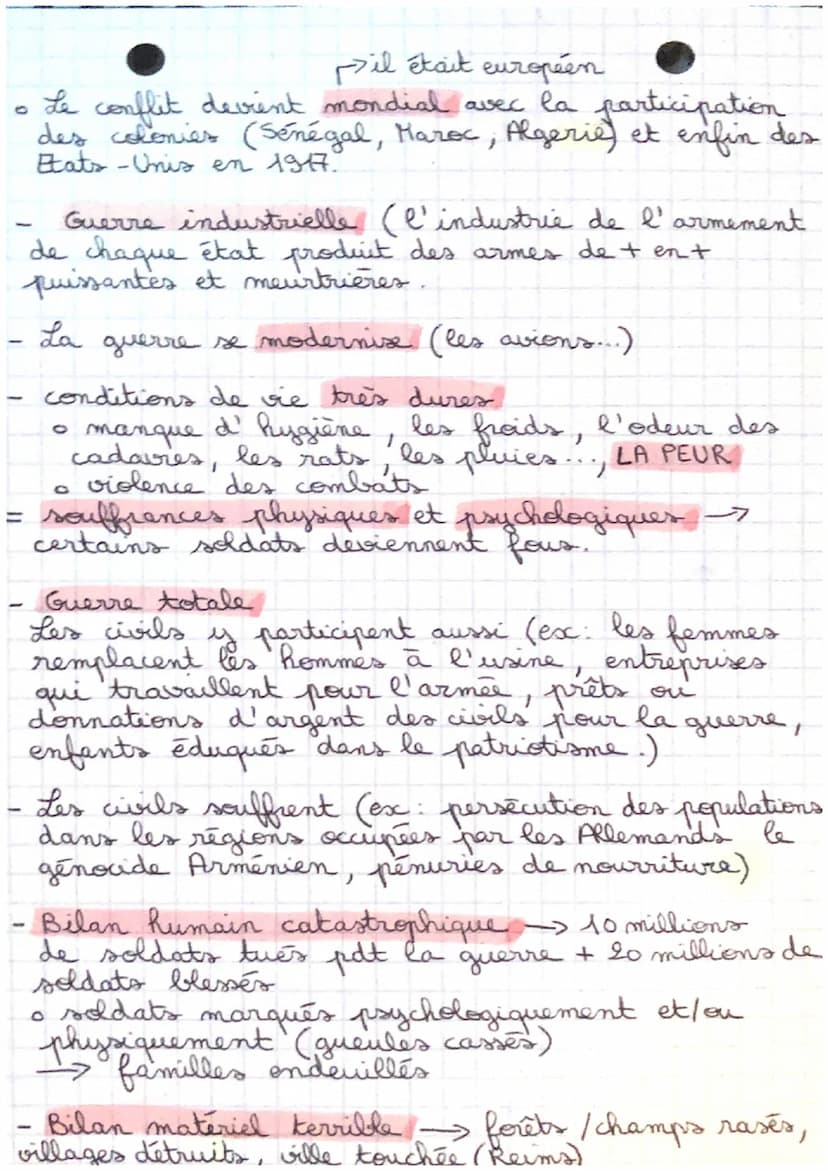 ↱il était européen
o Le conflit devient mondial avec la participation
des colonies (Sénégal, Maroc, Algerie) et enfin des
Etats-Unis en 1917.
- Guerre industrielle (l'industrie de l'armement
de chaque état produit des armes de + en +
puissantes et meurtrières.
- La guerre se modernise (les avions...)
- conditions de vie très dures
o manque d'hygiène, les froids, l'odeur des
cadavres, les rats, les pluies..., LA PEUR
o violence des combats
= souffrances physiques et psychologiques →
certains soldats deviennent fous.
- Guerre totale
Les civils y participent aussi (ex: les femmes
remplacent les hommes à l'usine, entreprises
qui travaillent pour l'armée, prêts ou
donnations d'argent des civils pour la guerre,
enfants éduqués dans le patriotisme.)
- Les civils souffrent (ex: persécution des populations
dans les régions occupées par les Allemands le
génocide Arménien, pénuries de nourriture)
- Bilan humain catastrophique → 10 millions
de soldats tués pdt la guerre + 20 millions de
soldats blessés
o soldats marqués psychologiquement et/ou
physiquement (gueules cassés)
→ familles endeuillés
- Bilan matériel terrible → forêts/champs rasés,
villages détruits, ville touchée (Reims)